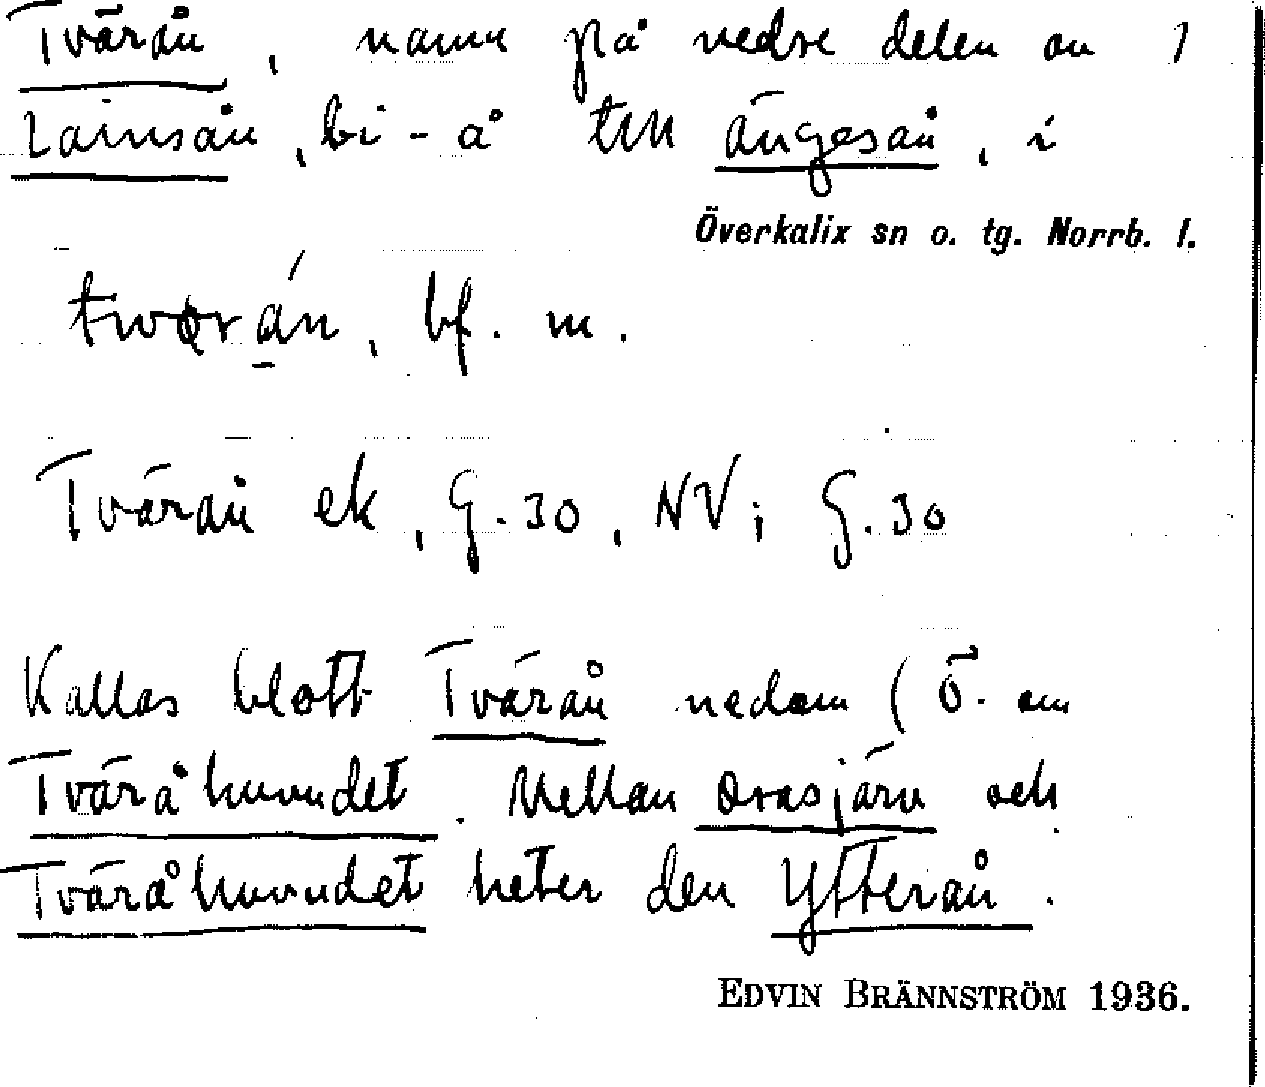 Tvärån, namn på nedre delen av 1
Lainsån, bi-å till Ängesån, i
Överkalix sn o. tg. Norrb. l.
bf. m.
Tvärån ek, G. 30, NV; G. 30
Kallas blott Tvärån nedom (Ö. om
Tväråhuvudet. Mellan Orasjärv och
Tväråhuvudet heter den Ytterån.
EDVIN BRÄNNSTRÖM 1936.